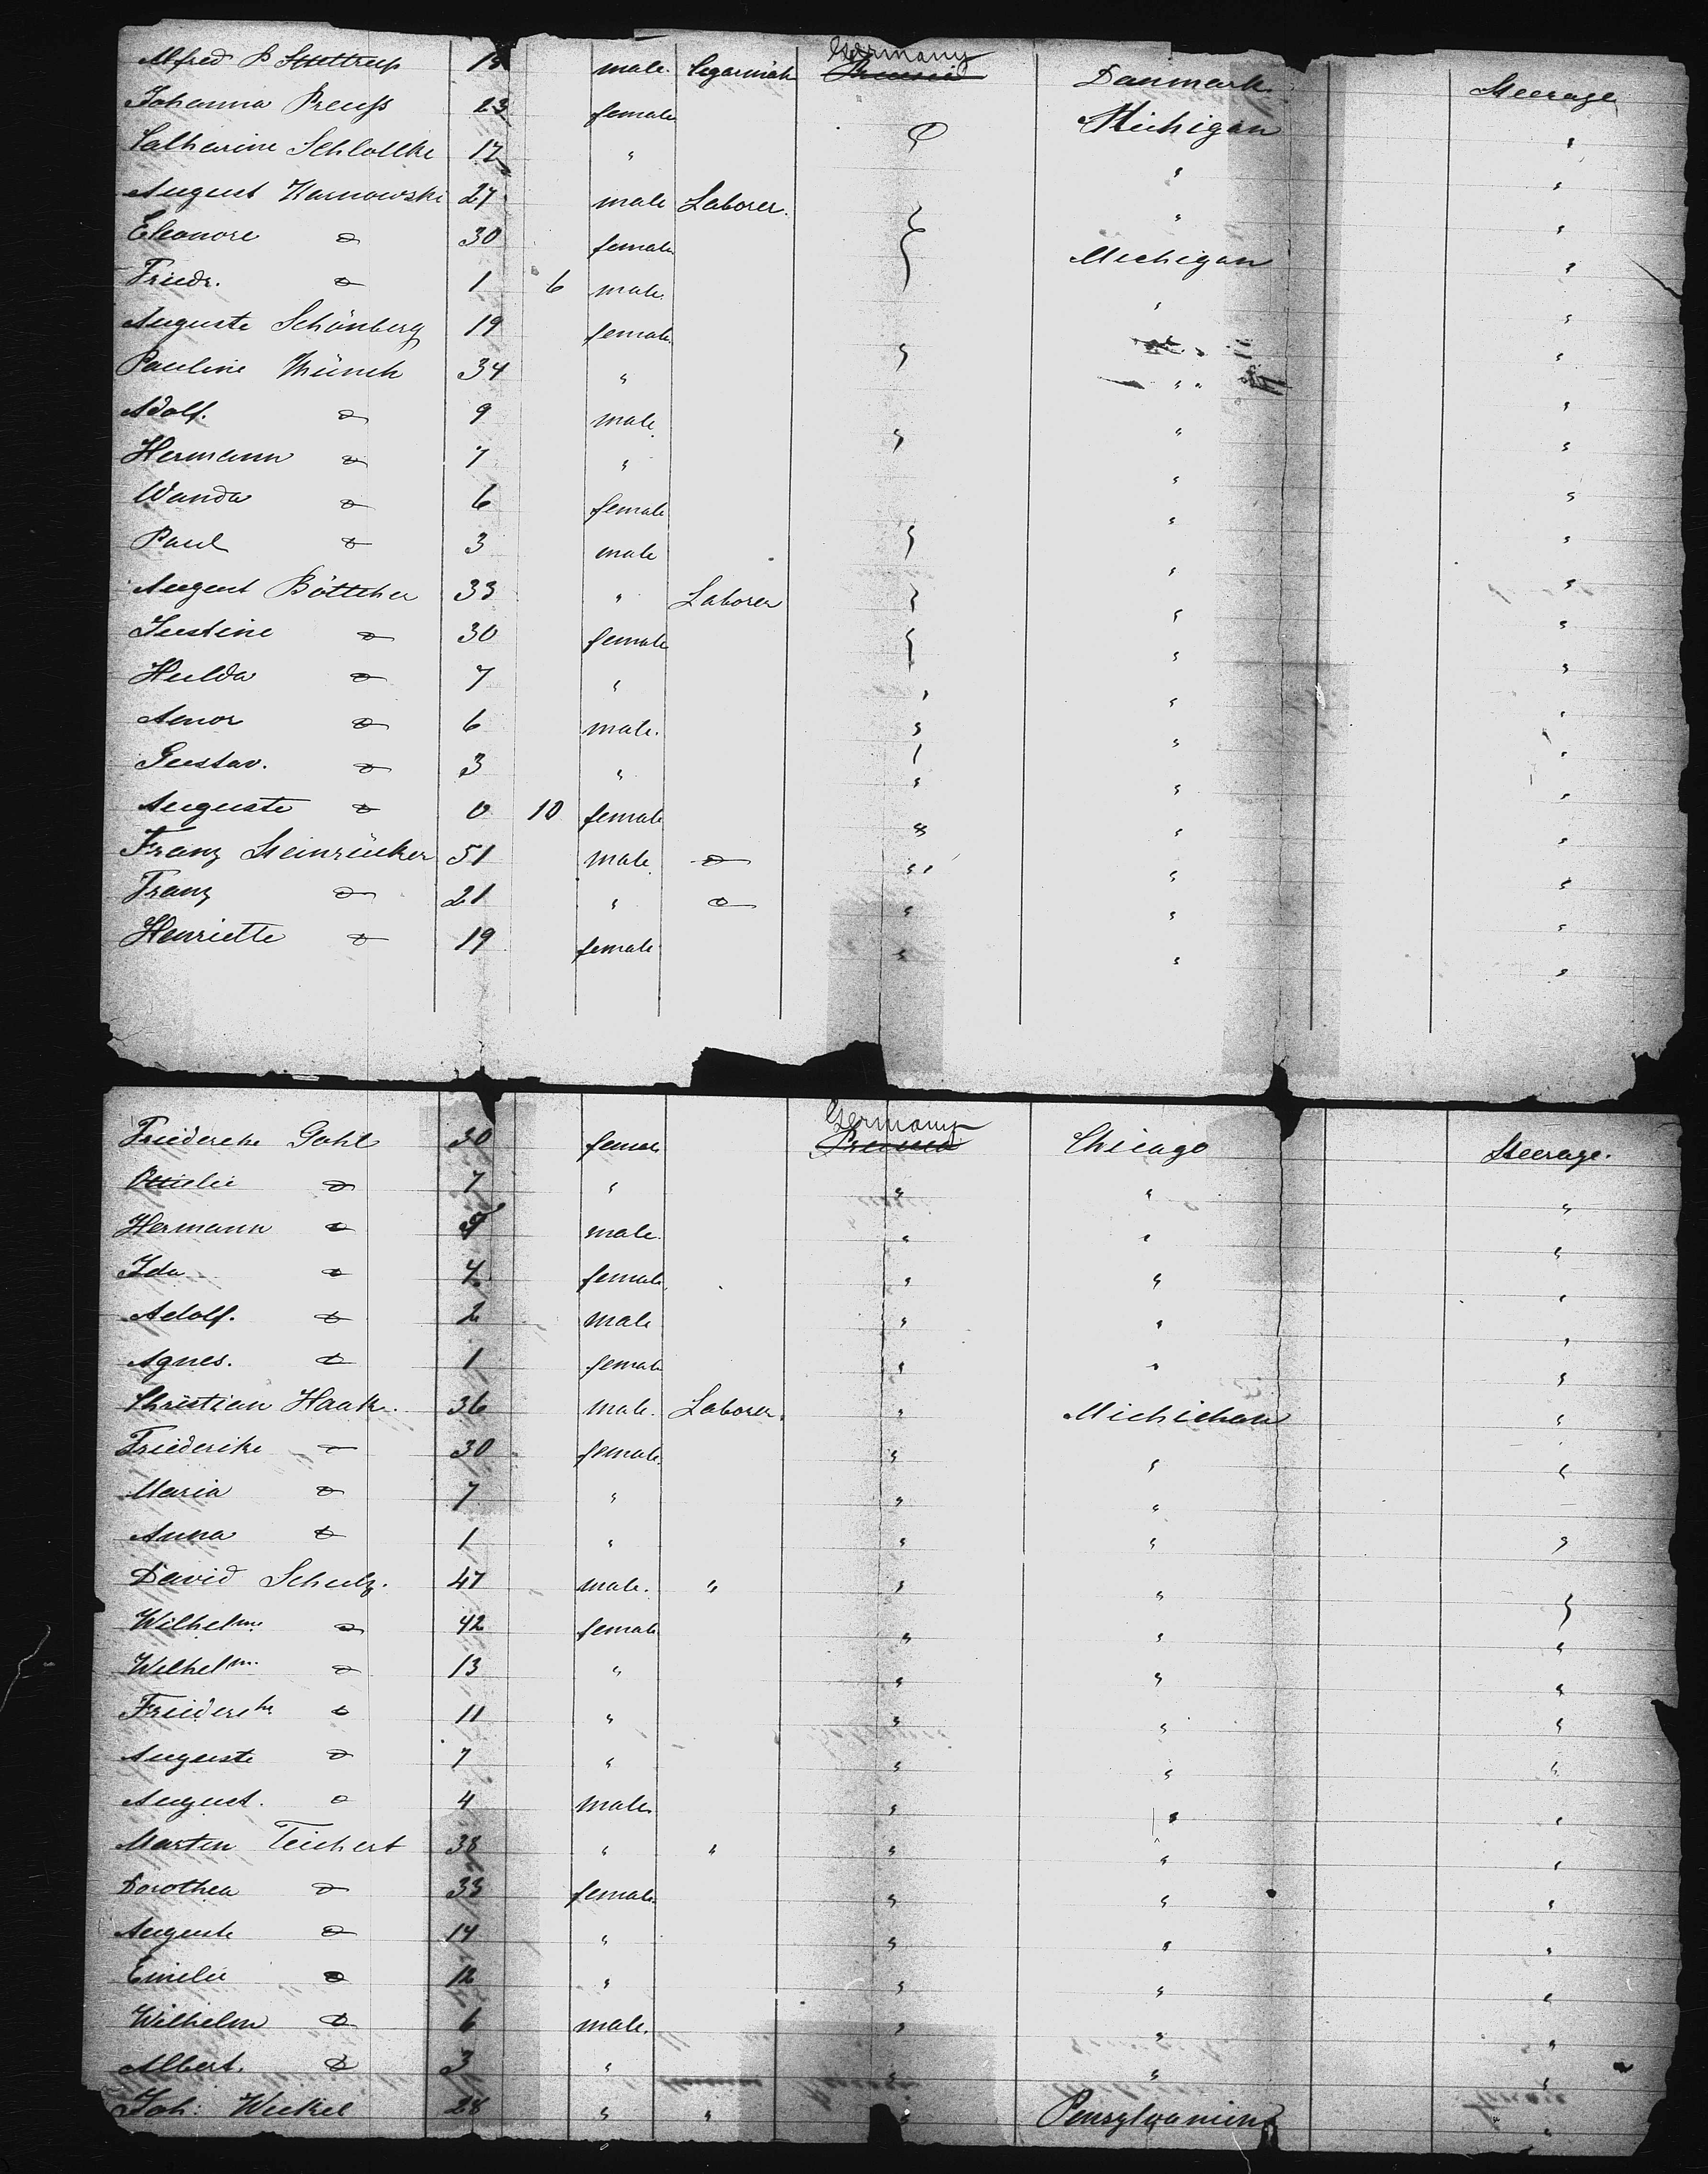 Germany
Alfred P Stuttrup 19 male. Cigarmak Prussia Danmark Steerage
Johanna Preuß 23 female Michigan "
Catharine Schlollke 17 " " "
August Warnowski 27 male Laborer. " "
Eleonore do 30 female Michigan "
Friedr. do 1 6 male " "
Auguste Schönberg 19 female "
Pauline Münch 34 " " " "
Adolf. do 9 male " " "
Hermann do 7 " " "
Wanda do 6 female " "
Paul do 3 male " " "
August Böttcher 33 " Laborer " " "
Justine do 30 female " " "
Hulda do 7 " " " "
Amor do 6 male. " " "
Gustav. do 3 " " " "
Auguste do 0 10 female " " "
Franz Steinrücker 51 male do " " "
Franz do 21 " do " " "
Henriette do 19 female " " "
Germany
Friederike Gohl 30 female Prussia Chicago Steerage.
Ottilie do 7 " " " "
Hermann do male. " " "
Ida do 4 female " " "
Adolf. do 2 male " " "
Agnes. do 1 female " " "
Christian Haak. 36 male. Laborer. " Michichan "
Friederike do 30 female " " "
Maria do 7 " " "
Anna do 1 " " " "
David Schulz. 47 male. " " " "
Wilhelme do 42 female " " "
Wilhelm. do 13 " " " "
Friederike do 11 " " " "
Auguste do 7 " " " "
August. do 4 male " " "
Martin Teichert 38 " " " " "
Dorothea do 33 female " " "
Auguste do 14 " " " "
Emilie do 12 " " " "
Wilhelm do 6 male. " " "
Albert. do 3 " " " "
Joh: Weikel 28 " " " Pensylvanien "